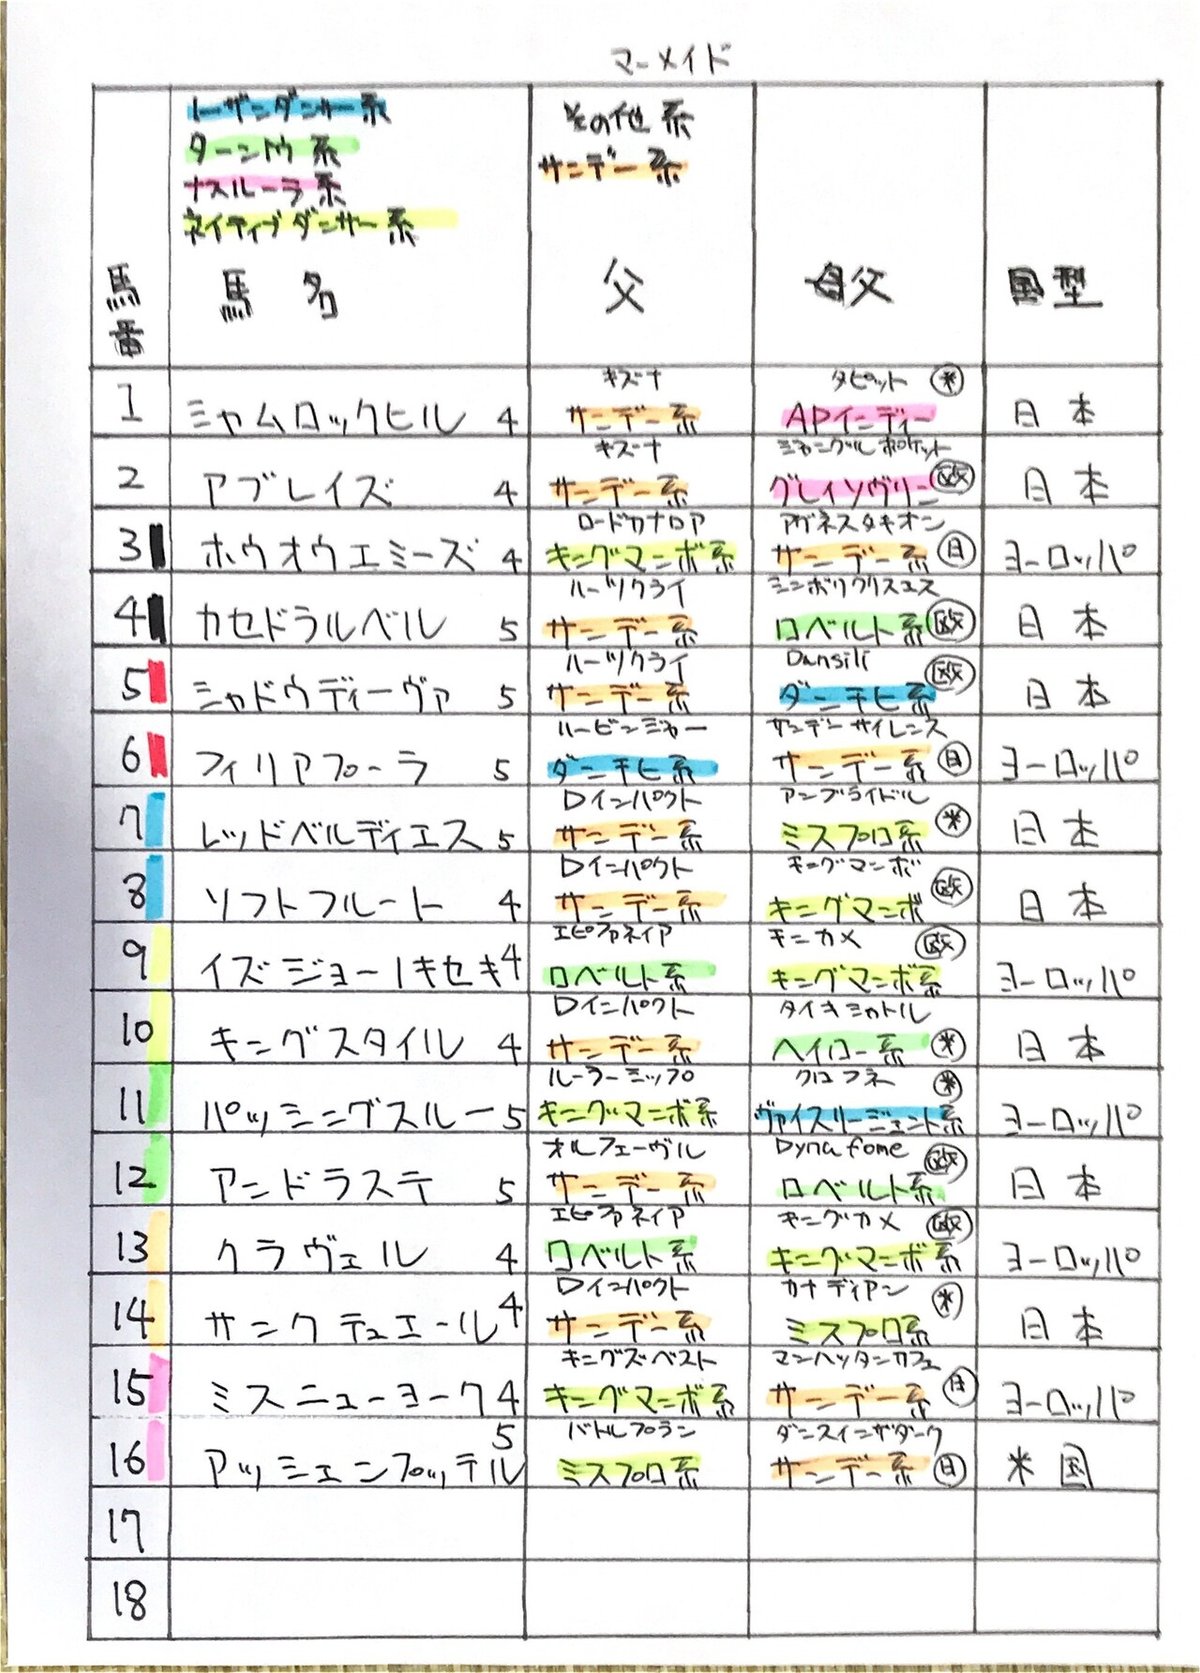 マーメイド
ノーザンダンサー系
ターントゥ系
ナスルーラ系
ネイティブダンサー系
その他系
サンデー系
馬番 馬名 父 母父 国型
キズナ タピット 米
1 シャムロックヒル 4 サンデー系 APインディー 日本
キズナ ジャングルポケット
2 アブレイズ 4 サンデー系 グレイソヴリン 欧 日本
ロードカナロア アグネスタキオン
3 ホウオウエミーズ 4 キングマンボ系 サンデー系 日 ヨーロッパ
ハーツクライ シンボリクリスエス
4 カセドラルベル 5 サンデー系 ロベルト系 欧 日本
ハーツクライ Dansili
5 シャドウディーヴァ 5 サンデー系 ダンチヒ系 欧 日本
ハービンジャー サンデーサイレンス
6 フィリアプーラ 5 ダンチヒ系 サンデー系 日 ヨーロッパ
Dインパクト アンブライドル
7 レッドベルディエス 5 サンデー系 ミスプロ系 米 日本
Dインパクト キングマンボ
8 ソフトフルート 4 サンデー系 キングマンボ 欧 日本
エピファネイア キンカメ 欧
9 イズジョーノキセキ 4 ロベルト系 キングマンボ系 ヨーロッパ
Dインパクト タイキシャトル
10 キングスタイル 4 サンデー系 ヘイロー系 米 日本
ルーラーシップ クロフネ 米
11 パッシングスルー 5 キングマンボ系 ヴァイスリージェント系 ヨーロッパ
オルフェーヴル Dyna fome 欧
12 アンドラステ 5 サンデー系 ロベルト系 日本
エピファネイア キングカメ 欧
13 クラヴェル 4 ロベルト系 キングマンボ系 ヨーロッパ
Dインパクト カナディアン 米
14 サンクテュエール 4 サンデー系 ミスプロ系 日本
キングズベスト マンハッタンカフェ
15 ミスニューヨーク 4 キングマンボ系 サンデー系 日 ヨーロッパ
5 バトルプラン ダンスインザダーク
16 アッシェンプッテル ミスプロ系 サンデー系 日 米国
17
18